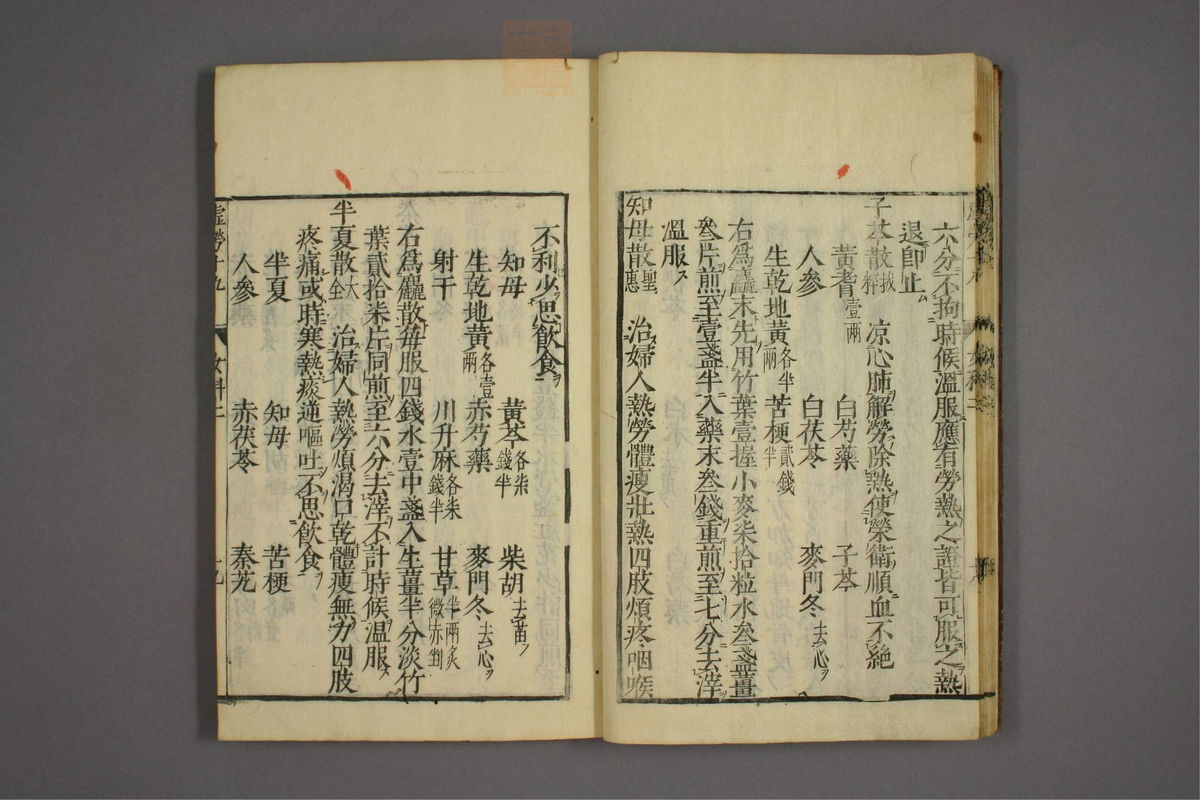 六分不拘時候溫服應有勞熱之證皆可服之熱
退即止
子芩散拔粹 涼心肺解勞除熱使榮衛順血不絕
黃耆壹兩 白芍藥 子芩
人參 白茯苓 麥門冬去心
生乾地黃各半兩 苦梗貳錢半
右爲麤末先用竹葉壹握小麥柒拾粒水叁盞薑
叁片煎至壹盞半入藥末叁錢重煎至七分去滓
溫服
知母散聖惠 治婦人熱勞體瘦壯熱四肢煩疼咽喉
不利少思飲食
知母 黃芩各柒錢半 柴胡去苗
生乾地黃各壹兩 赤芍藥 麥門冬去心
射干 川升麻各柒錢半 甘草半兩炙微赤剉
右爲麤散每服四錢水壹中盞入生薑半分淡竹
葉貳拾柒片同煎至六分去滓不計時候溫服
半夏散大全 治婦人熱勞煩渴口乾體瘦無力四肢
疼痛或時寒熱痰逆嘔吐不思飲食
半夏 知母 苦梗
人參 赤茯苓 秦艽